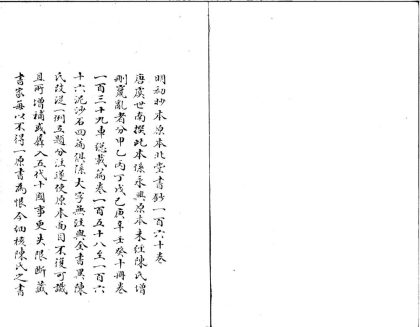 明初抄本原本北堂書鈔一百六十卷
唐虞世南撰此本係永興原本未經陳氏增
刪竄亂者分甲乙丙丁戊己庚辛壬癸十冊卷
一百三十九車總載篇卷一百五十八至一百六
十六泥沙石四篇俱係大字無注與全書異陳
氏改從一例五題分注遂使原本面目不復可識
且所增補或羼入五代十國事更失限斷藏
書家每以不得一原書為恨今細核陳氏之書